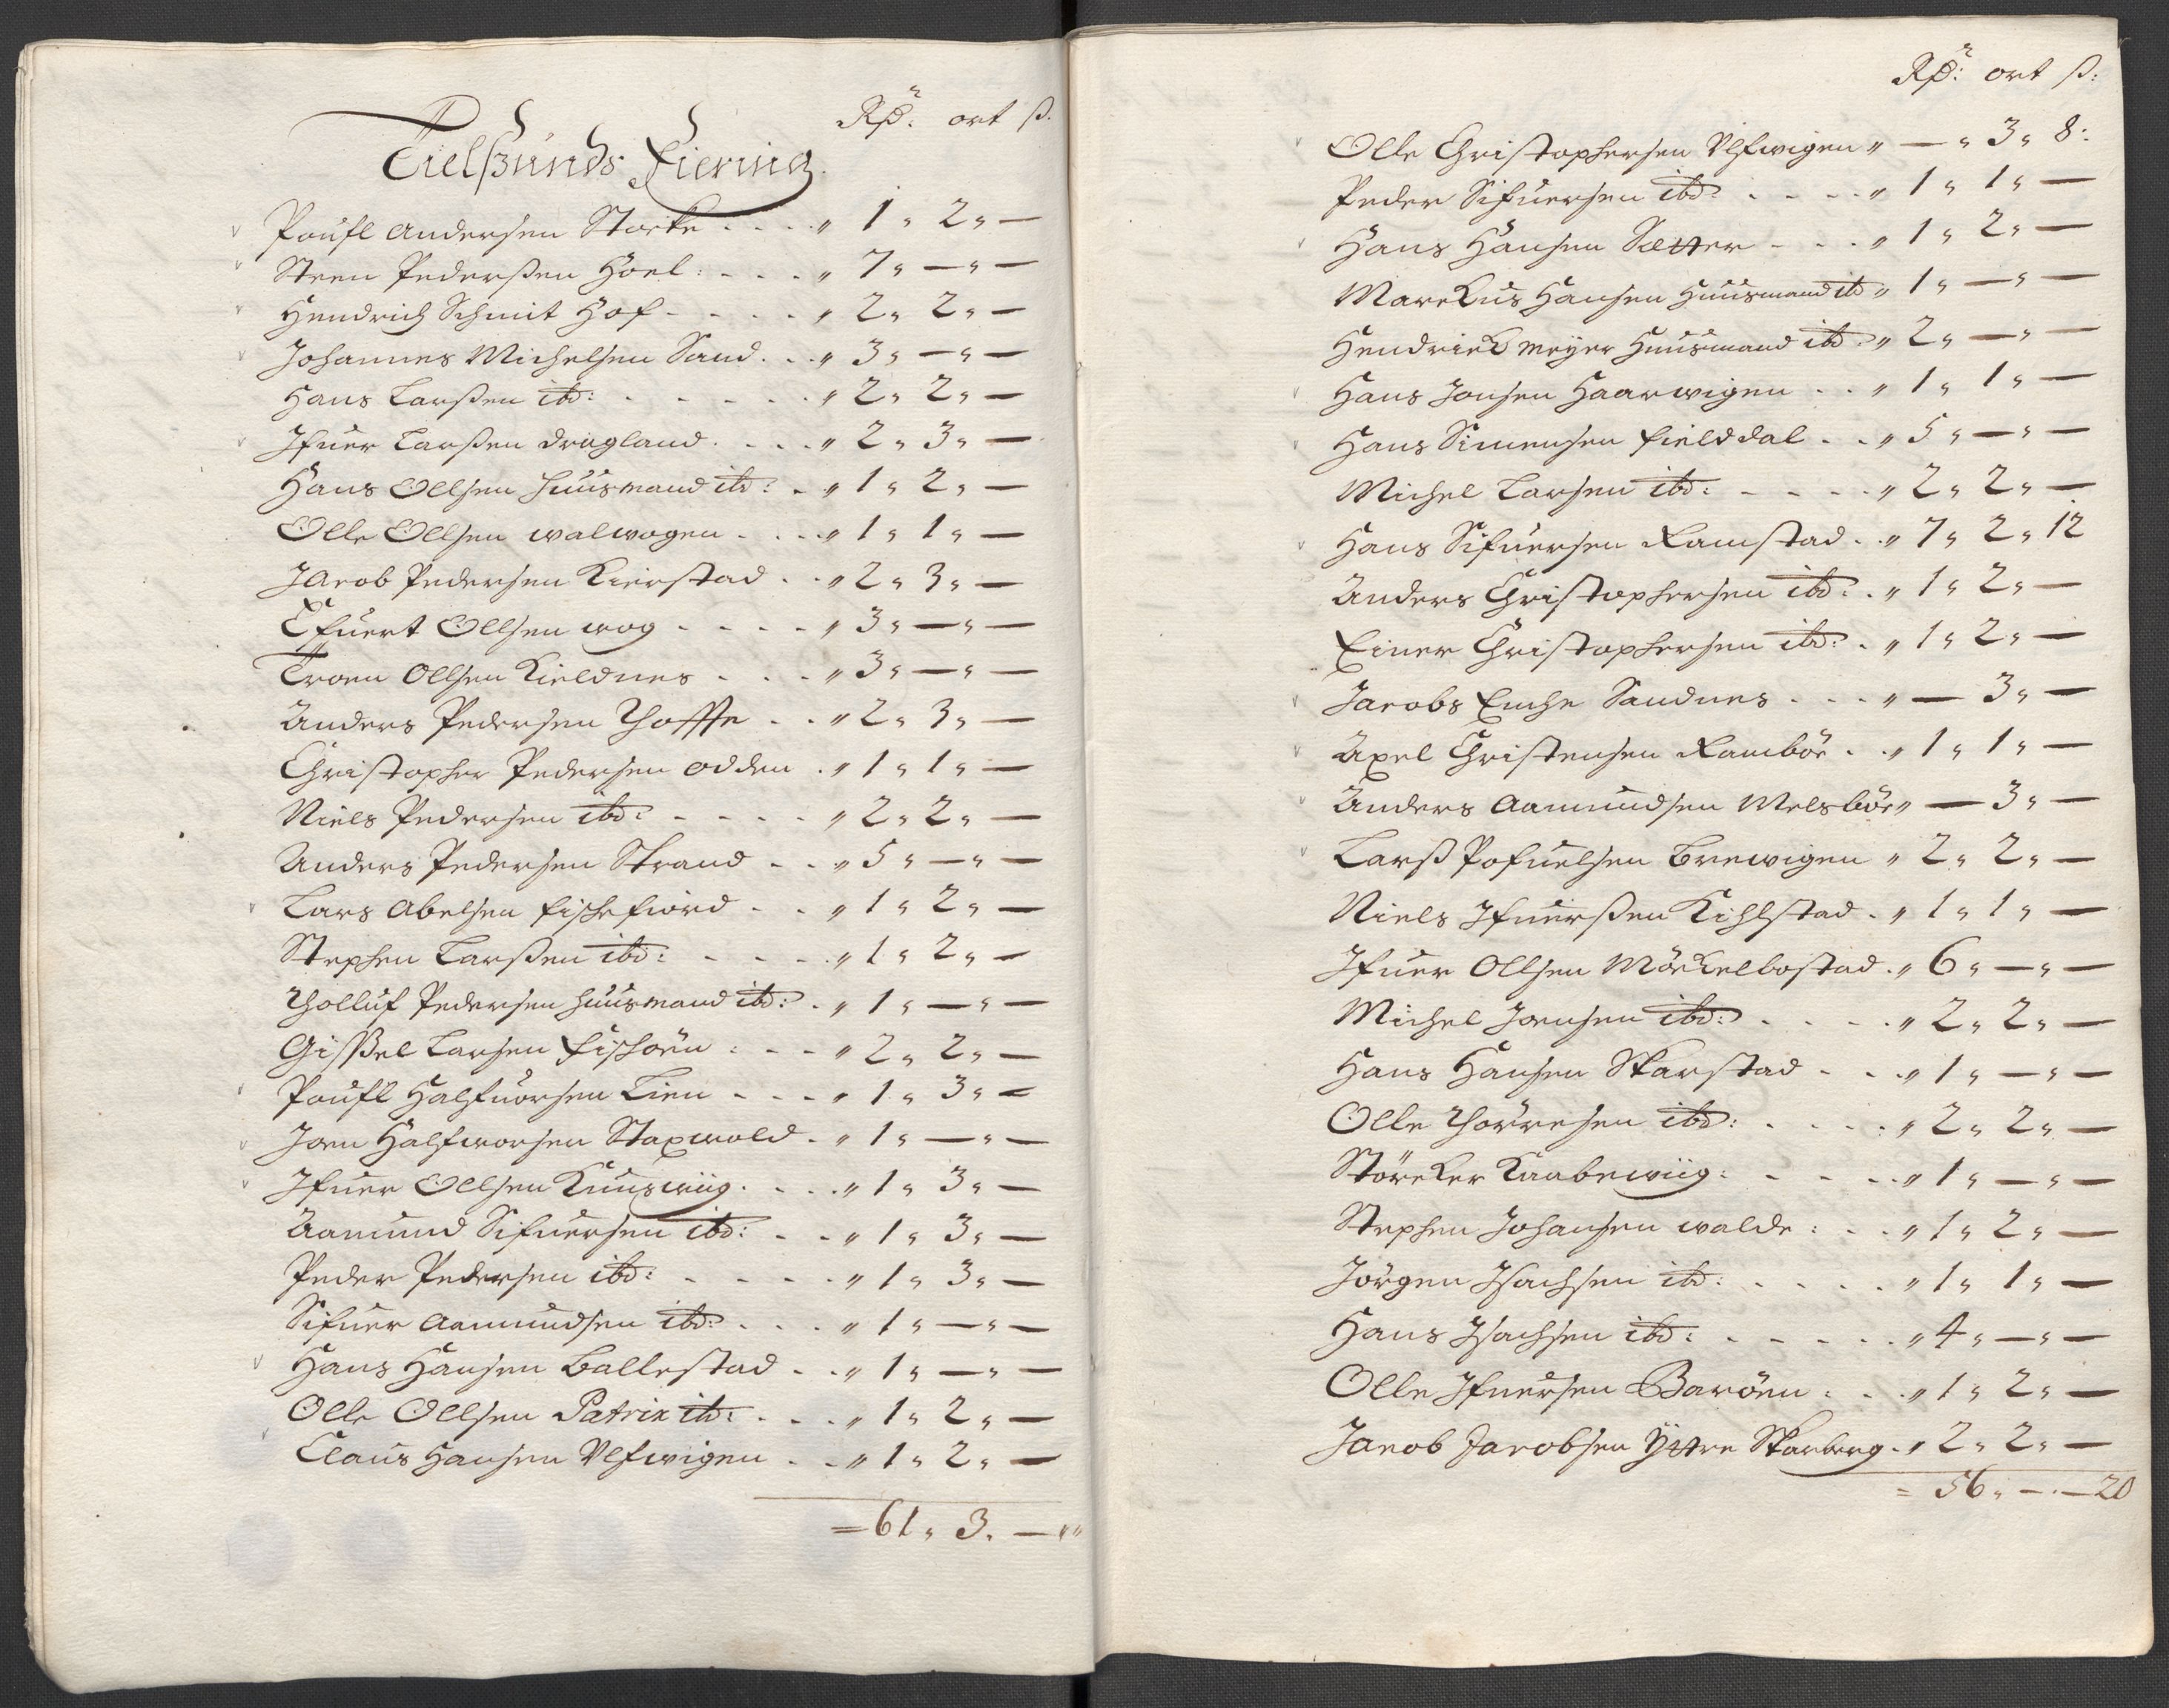 Rdr: ort ß.
Tielßunds Fiering
Poufl Andersen Storke . . . . „ 1 „ 2 „ —
Steen Pederßen Hoel: - . . . „ 7 „ — „ —
Hendrich Schmit Hof - . . . . „ 2 „ 2 „ —
Johannes Michelsen Sand . . „ 3 „ — „ —
Hans Larßen ibd: . . . . . . „ 2 „ 2 „ —
Ifuer Larßen Dragland . . . . „ 2 „ 3 „ —
Hans Ollsen huusmand ibd: . „ 1 „ 2 „ —
Olle Ollsen walwogen . . . . „ 1 „ 1 „ —
Jacob Pedersen Kierstad . . „ 2 „ 3 „ —
Efuert Ollsen wog - . . . . „ 3 „ — „ —
Troen Ollsen Kieldnes . . . „ 3 „ — „ —
Anders Pedersen Thoffte . . „ 2 „ 3 „ —
Christopher Pedersen odden . „ 1 „ 1 „ —
Niels Pedersen ibd: . . . . . „ 2 „ 2 „ —
Anders Pedersen Strand . . „ 5 „ — „ —
Lars Abelsen fiskefiord . . „ 1 „ 2 „ —
Stephen Larßen ibd: . . . . „ 1 „ 2 „ —
Tholluf Pedersen huusmand ibd: . „ 1 „ — „ —
Gißel Larsen fiskøen : - - „ 2 „ 2 „ —
Poufl Halfuorsen Lien . . . „ 1 „ 3 „ —
Joen Halfworsen Staxwold . „ 1 „ — „ —
Ifuer Ollsen Kuuswiig . . . . „ 1 „ 3 „ —
Aamund Sifuersen ibd: . . „ 1 „ 3 „ —
Peder Pedersen ibd: . . . . . „ 1 „ 3 „ —
Sifuer Aamundsen ibd: . . . „ 1 „ — „ —
Hans Hansen Ballestad . . „ 1 „ — „ —
Olle Ollsen Patrix ibd: . . . „ 1 „ 2 „ —
Claus Hansen Ulfwigen . . „ 1 „ 2 „ —
= 61 „ 3. — „
Rdr: ort ß:
Olle Christophersen Ulfwigen „ — „ 3 „ 8:
Peder Sifuersen ibd: . . . . „ 1 „ 1 „ —
Hans Hansen Sætter . . . „ 1 „ 2 „ —
Marckus Hansen Huusmand ibd „ 1 „ — „ —
Hendrick Meyer Huusmand ibd: „ 2 „ — „ —
Hans Jonsen Haarwigen . . „ 1 „ 1 „ —
Hans Simensen Fielddal . . „ 5 „ — „ —
Michel Larsen ibd: . . . . . „ 2 „ 2 „ —
Hans Sifuersen Ramstad . . „ 7 „ 2 „ 12
Anders Christophersen ibd: . „ 1 „ 2 „ —
Einer Christophersen ibd: . „ 1 „ 2 „ —
Jacobs Encke Sandnes . . . „ — 3 „ —
Axel Christensen Rambör . . „ 1 „ 1 „ —
Anders Aamundsen Melsbör „ — 3 „ —
Larß Pofuelsen Brewigen „ 2 „ 2 „ —
Niels Ifuerßen Kihlstad . „ 1 „ 1 „ —
Ifuer Ollsen Mörkelbostad . „ 6 „ — „ —
Michel Joensen ibd: . . . . „ 2 „ 2 „ —
Hans Hansen Skarstad . . . „ 1 „ — „ —
Olle Thorresen ibd: . . . . . „ 2 „ 2 „ —
Störcker Kaabewiig: . . . . „ 1 „ — „ —
Stephen Johansen walde : . . „ 1 „ 2 „ —
Jörgen Isachsen ibd: . . . . . „ 1 „ 1 „ —
Hans Isachsen ibd: . . . . . „ 4 „ — „ —
Olle Ifuersen Baröen : . . „ 1 „ 2 „ —
Jacob Jacobsen Yttre Skarberg . „ 2 „ 2 „ —
= 56 „ — . — 20